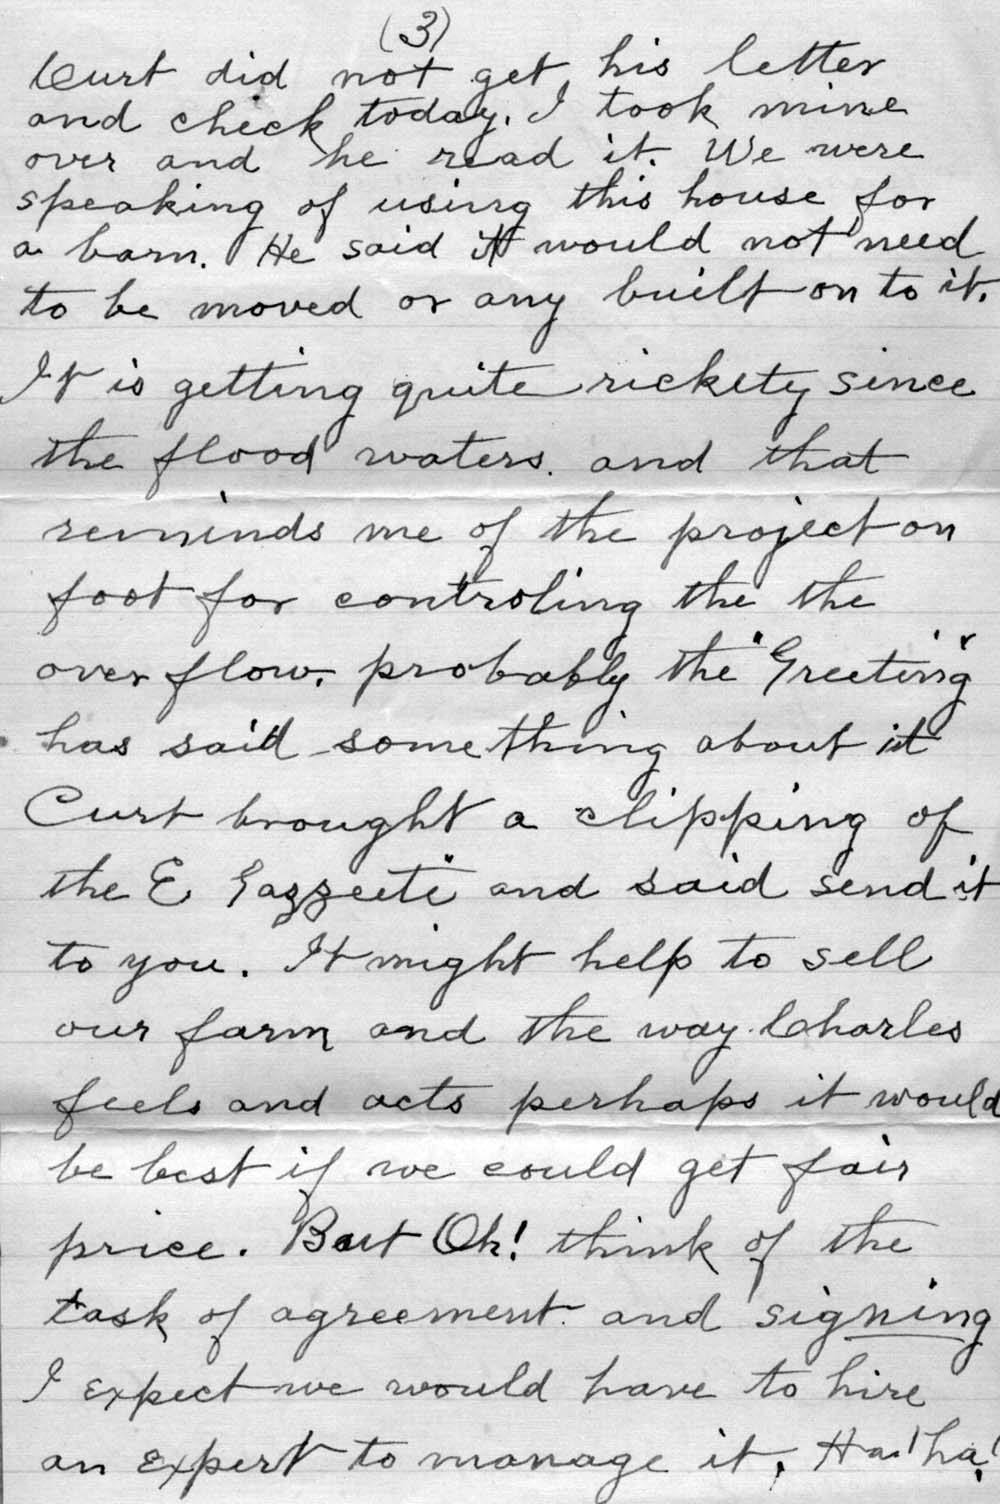 (3)
Curt did not get his letter
and check today. I took mine
over and he read it. We were
speaking of using this house for
a barn. He said it would not need
to be moved or any built on to it.
It is getting quite rickety since
the flood waters. and that
reminds me of the project on
foot for controling the the
over flow. probably the "Greeting"
has said something about it
Curt brought a clipping of
the E Gazzeete" and said send it
to you. It might help to sell
our farm and the way Charles
feels and acts perhaps it would
be best if we could get fair
price. But Oh! think of the
task of agreement and signing
I expect we would have to hire
an expert to manage it. Ha! ha!